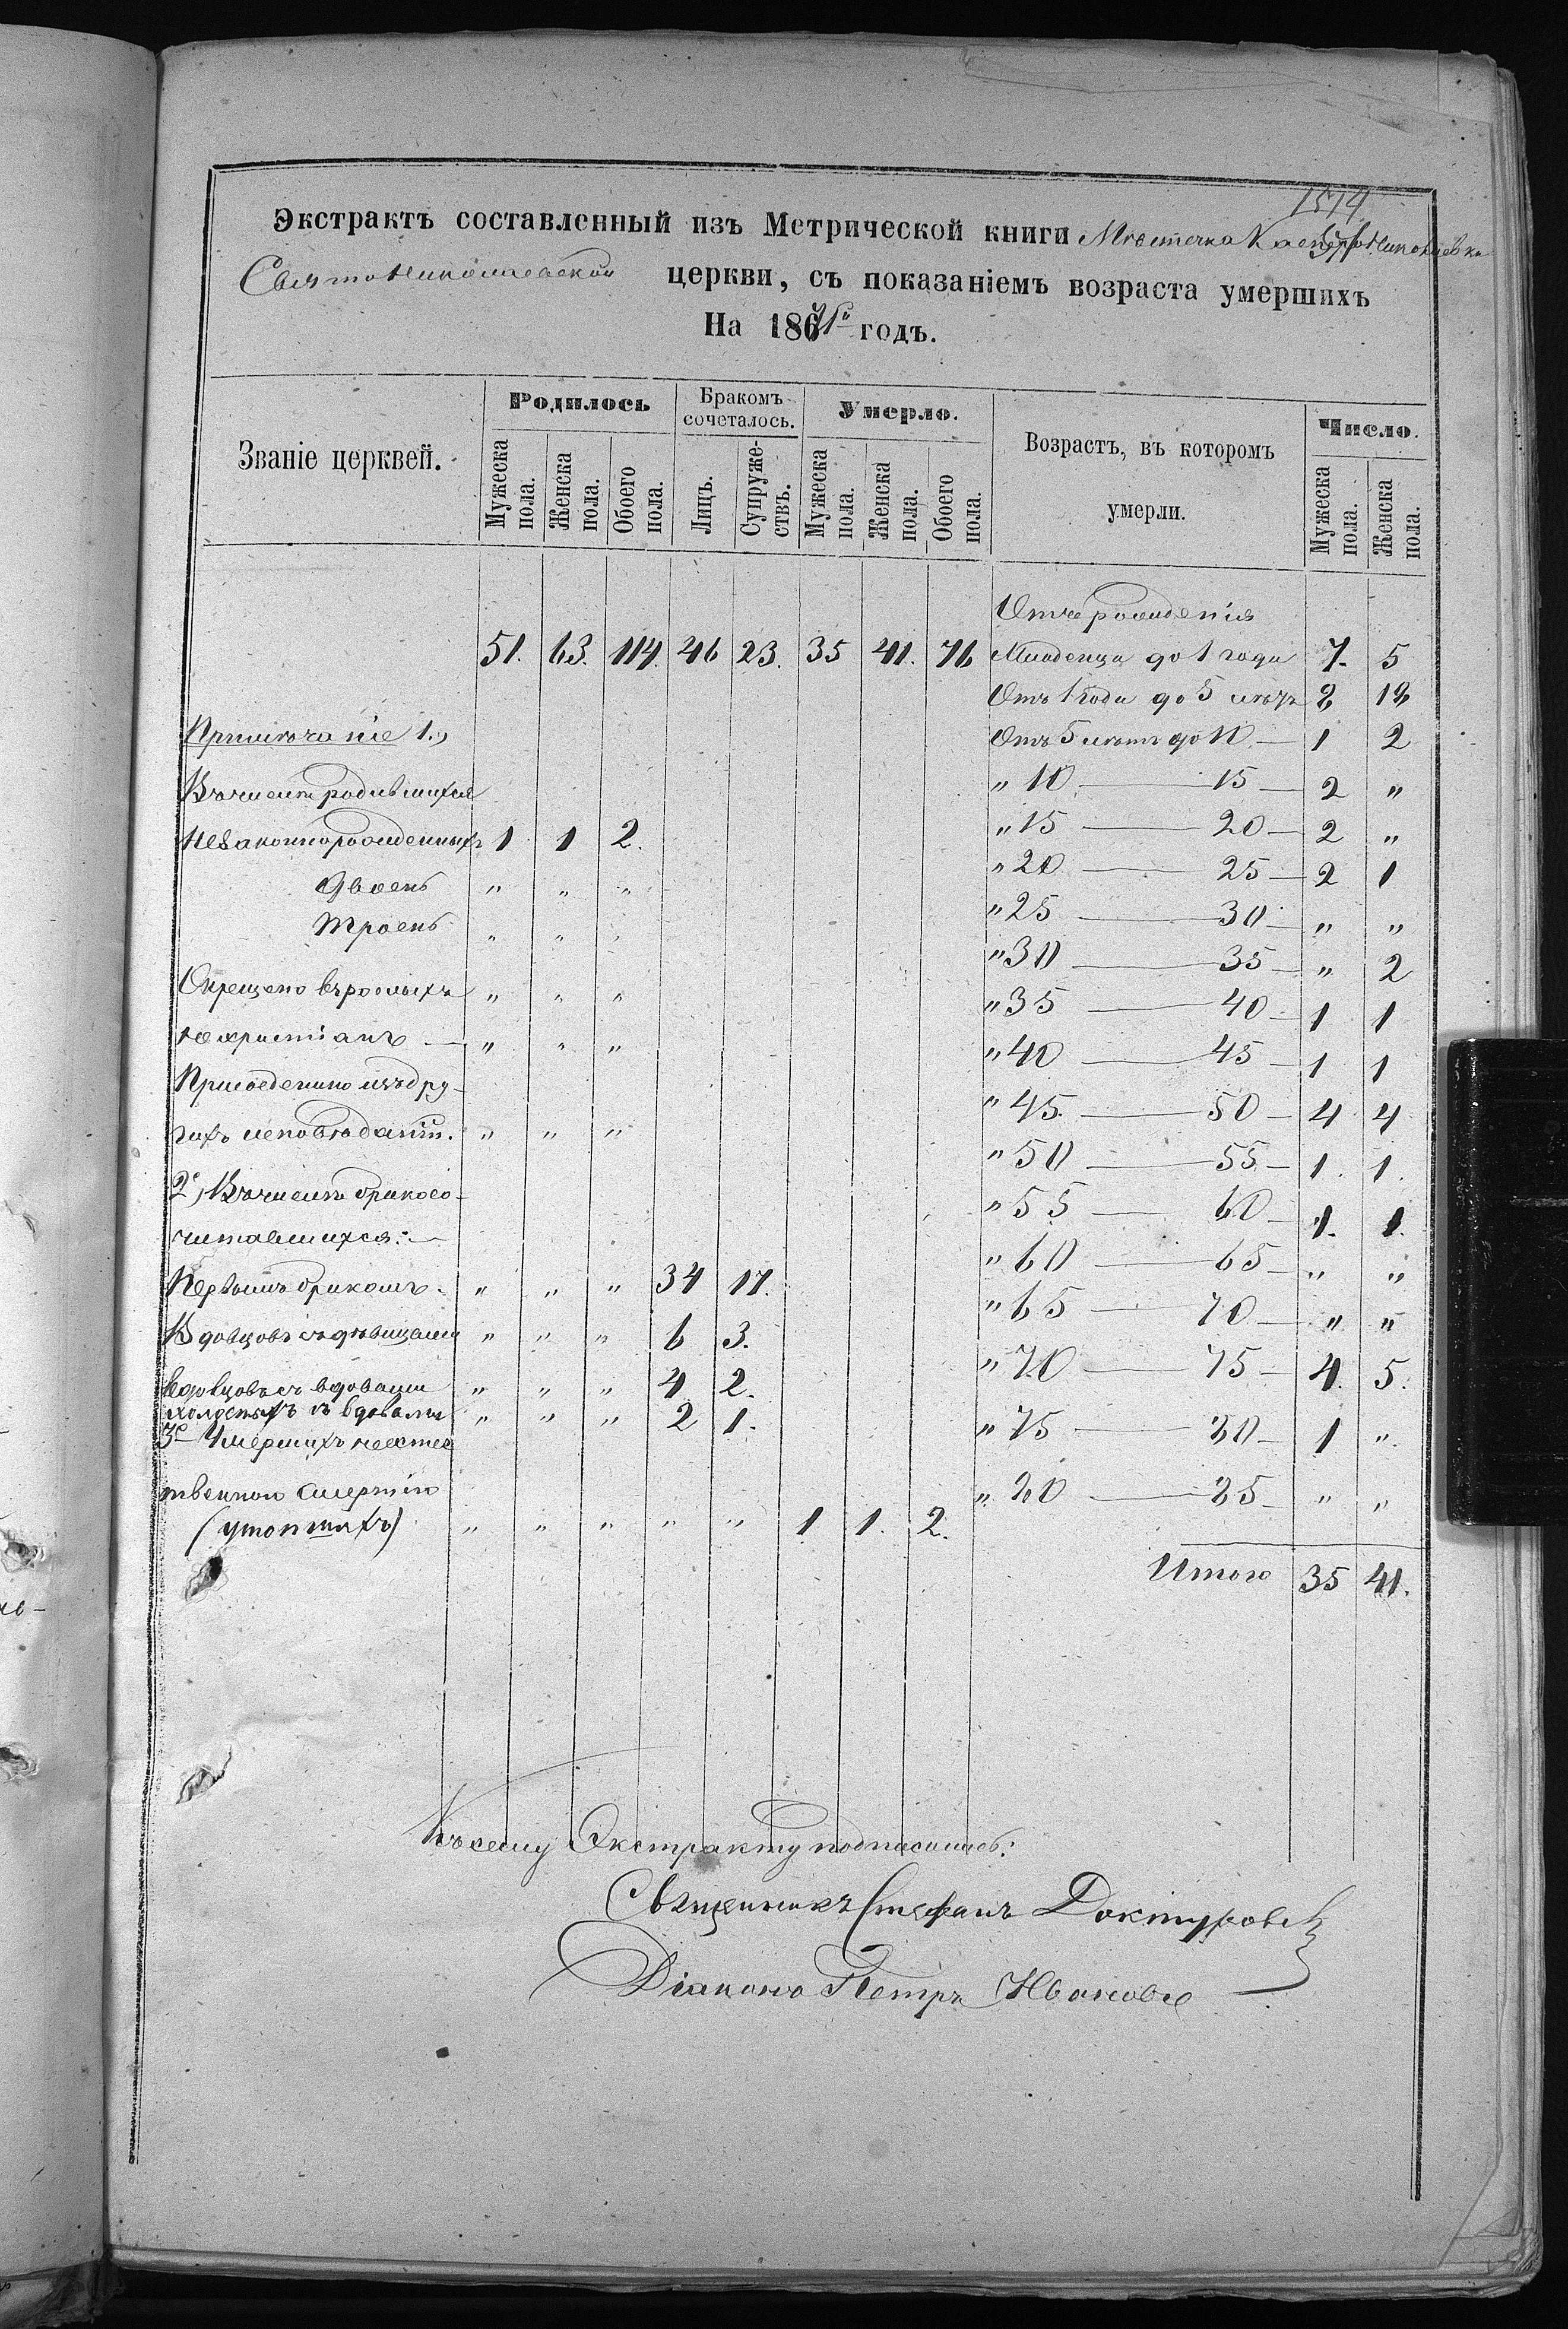 1514
Экстрактъ составленный изъ Метрической книги Мѣстечка Касперо-Николаевки
Свято Николаевской церкви, съ показаніемъ возраста умершихъ
На 186 годъ.
Званіе церквей. Родилось Бракомъ сочеталось. Умерло. Возрастъ, въ которомъ умерли. Число.
Мужеска пола. Женска пола. Обоего пола. Лицъ. Супруже-ствъ. Мужеска пола. Женска пола. Обоего пола. Мужеска пола. Женска пола.
Отъ рожденія
51. 63. 114. 46 23. 35 41. 76 Младенца до 1 года 7. 5
Отъ 1 года до 5 лѣтъ 8 18
Примѣчаніе 1., Отъ 5 лѣтъ до 10 — 1 2
Въ числѣ родившихся „ 10 — 15 — 2 „
незаконнорожденныхъ 1 1 2. „ 15 — 20 — 2 „
Двоенъ „ „ „ „ 20 — 25 — 2 1
Троенъ „ „ „ „ 25 — 30 — „ „
„ 30 — 35 — „ 2
Окрещено взрослыхъ „ „ „ „ 35 — 40 — 1 1
нехристіанъ — „ „ „ „ 40 — 45 — 1 1
Присоединено изъ дру-
„ 45. — 50 — 4 4
гихъ исповѣданій. „ „ „ „ 50 — 55 — 1. 1.
2е, Въ числѣ бракосо-
„ 55 — 60 — 1. 1.
читавшихся: — „ 60 — 65 — „ „
Первымъ бракомъ. „ „ „ 34 17. „ 65 — 70 — „ „
Вдовцовъ съ дѣвицами „ „ „ 6 3. „ 70 — 75 — 4. 5.
Вдовцовъ съ вдовами „ „ „ 4 2.
холостыхъ съ вдовами „ „ „ 2 1. „ 75 — 80 — 1 „
3е Умершихъ неестес
твенной смертію „ 80 — 85 — „ „
(утопшихъ) „ „ „ „ „ 1 1. 2.
Итого 35 41.
Къ сему Экстракту подписались:
Священникъ Стефанъ Доктуровъ
Діаконъ Петръ Ивановъ